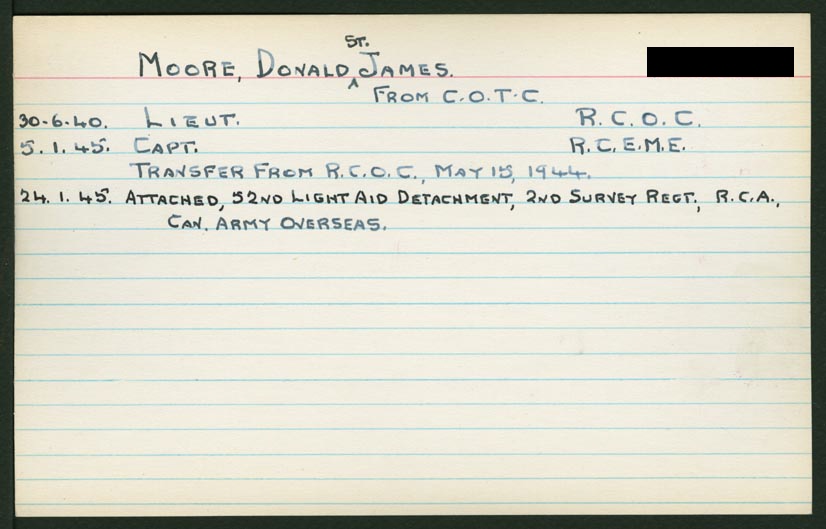 MOORE, DONALD ST. JAMES.
FROM C.O.T.C.
30-6-40. LIEUT. R.C.O.C.
5.1.45. CAPT. R.C.E.M.E.
TRANSFER FROM R.C.O.C., MAY 15, 1944.
24.1.45. ATTACHED, 52ND LIGHT AID DETACHMENT, 2ND SURVEY REGT., R.C.A.,
CAN. ARMY OVERSEAS.